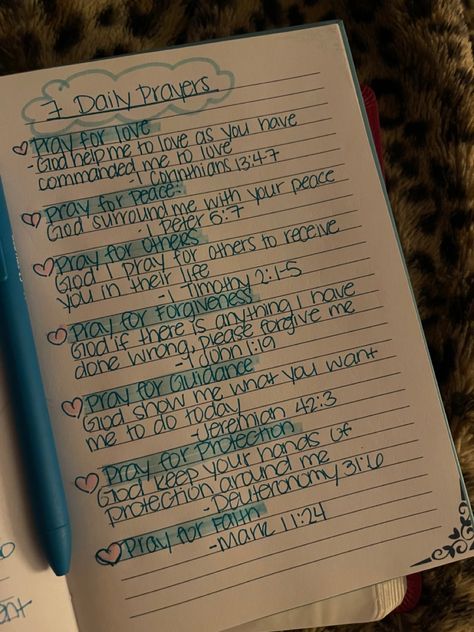 7 Daily Prayers
Pray for love
-God help me to love as you have
commanded me to love
-1 Corinthians 13:4-7
Pray for peace:
God surround me with your peace
-1 Peter 5:7
Pray for others
God I pray for others to receive
you in their life
-1 Timothy 2:1-5
Pray for Forgiveness
God if there is anything I have
done wrong, please forgive me
-1 John 1:9
Pray for Guidance
God show me what you want
me to do today
-Jeremiah 42:3
Pray for Protection
God keep your hands of
protection around me
-Deuteronomy 31:6
Pray for Faith
-Mark 11:24